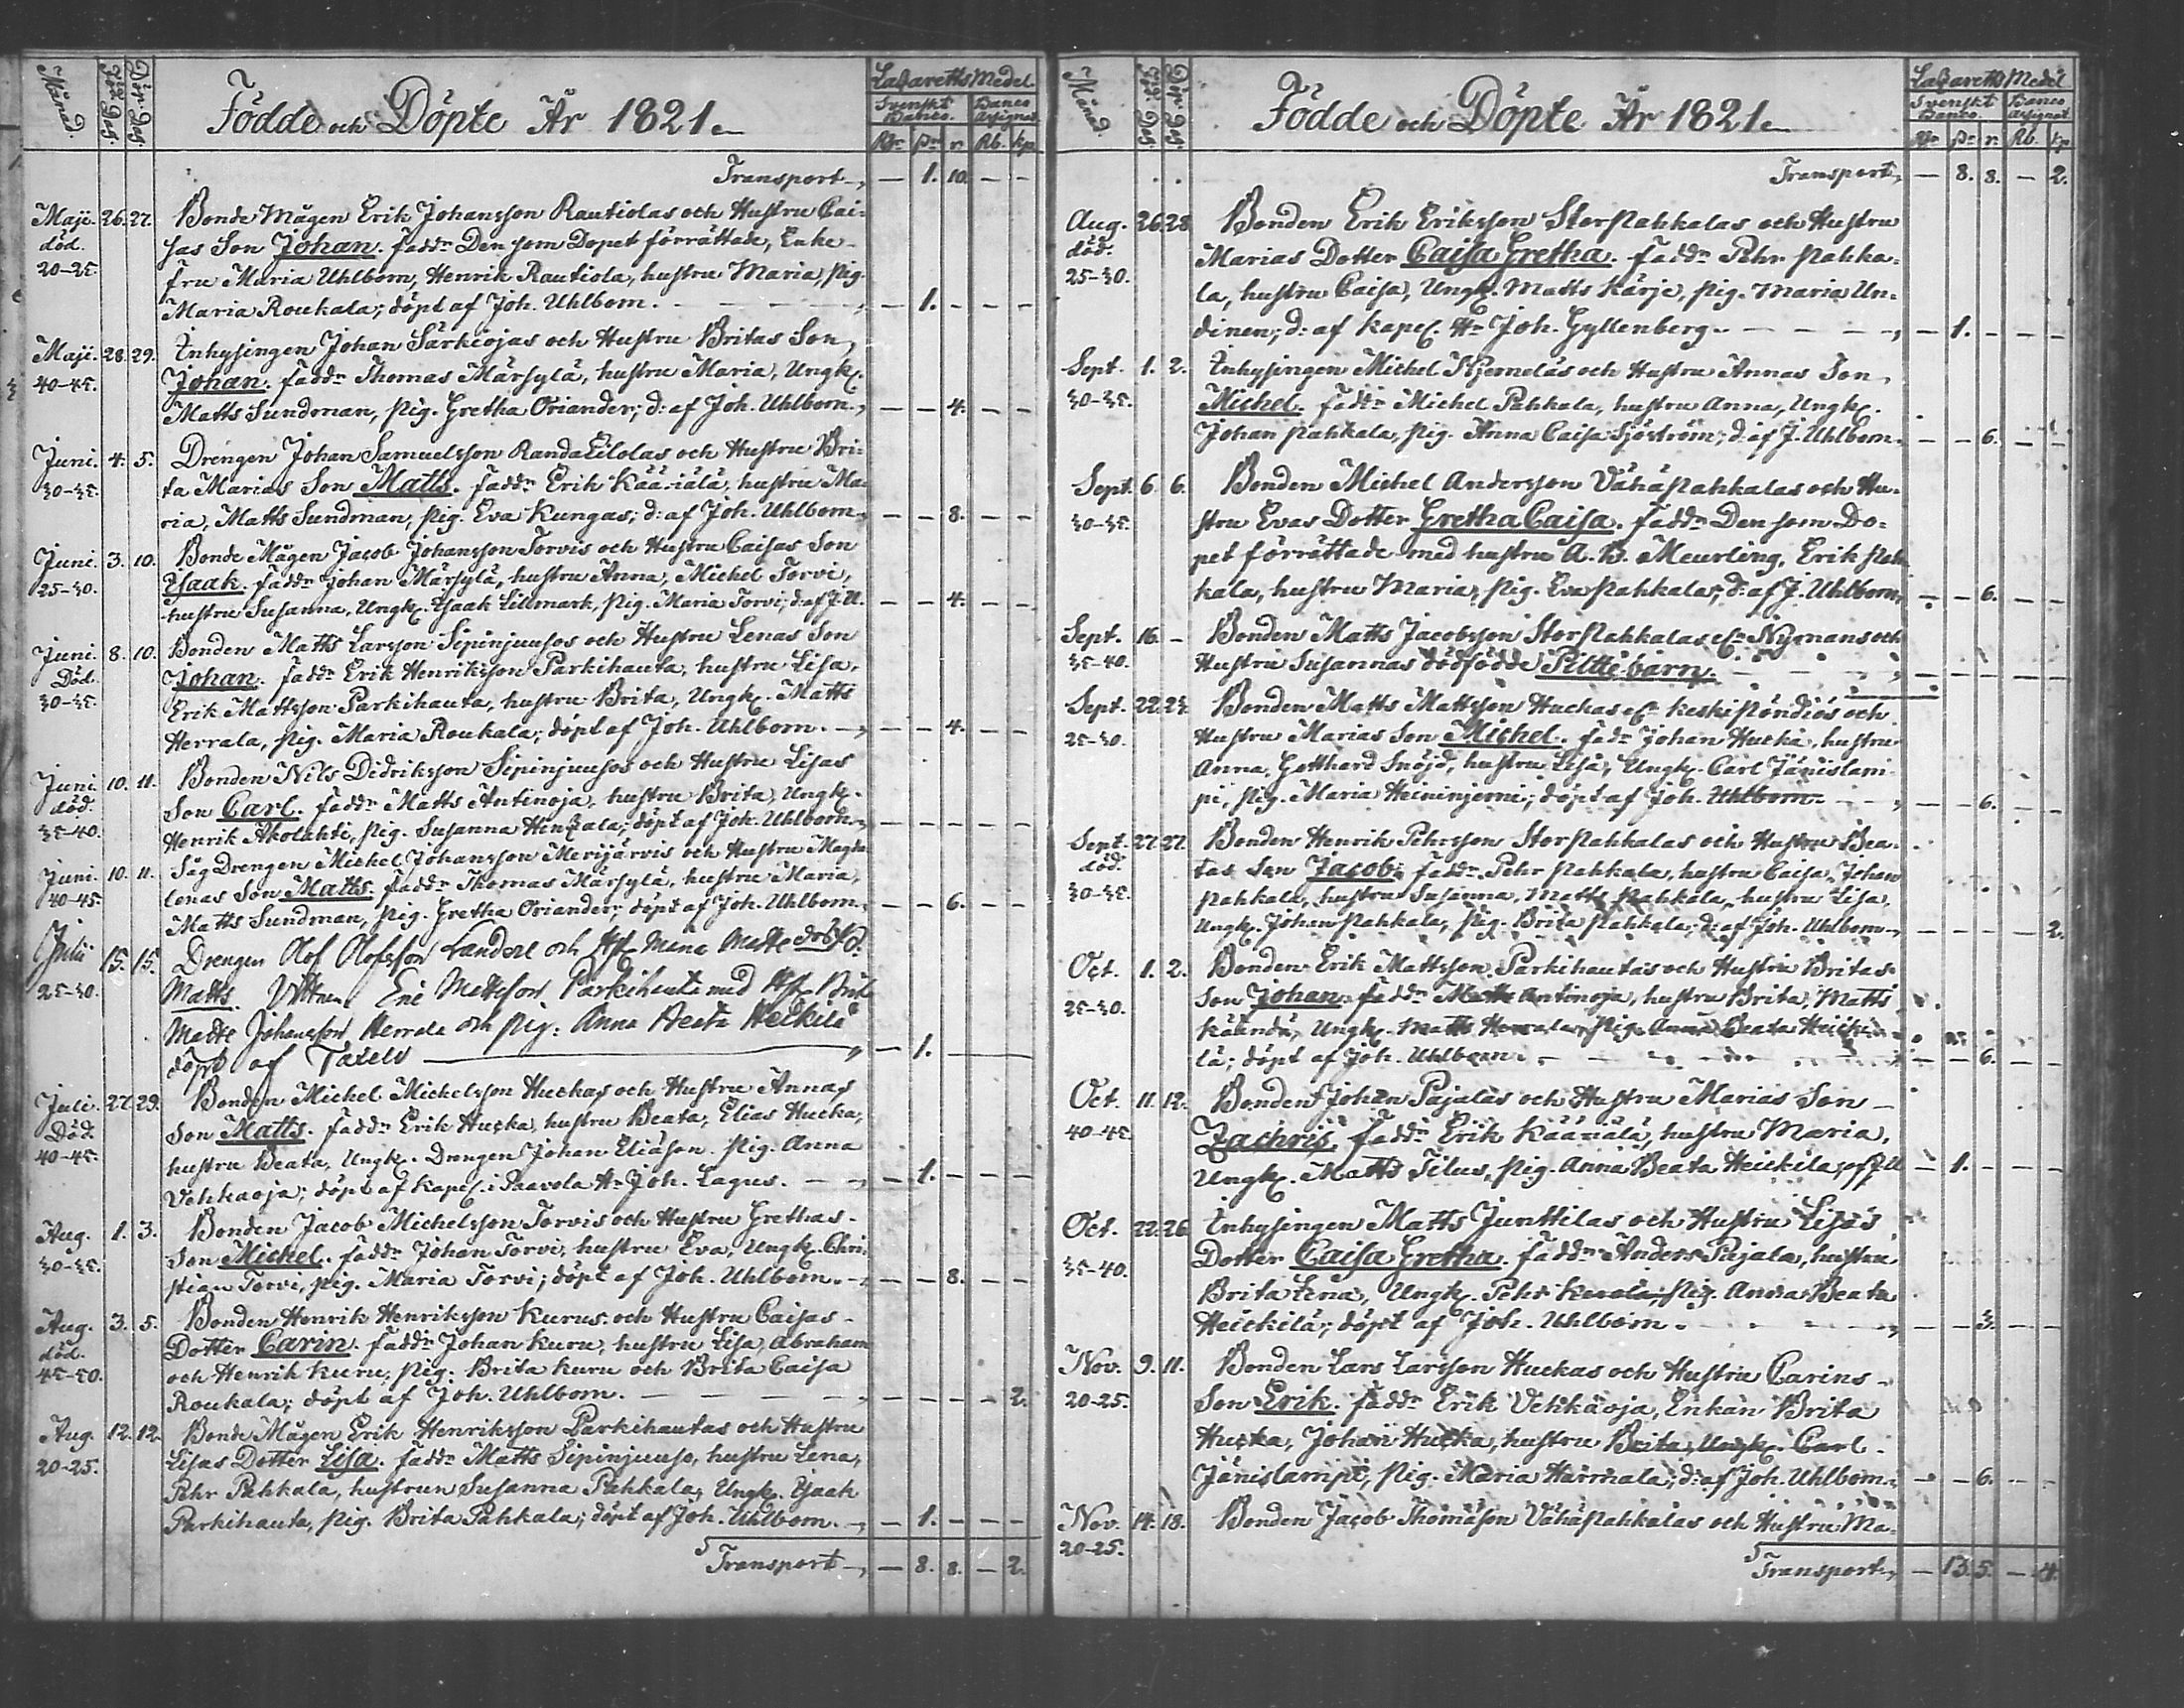 Månad.
Föd. Dag.
Döp. Dag
Födde och Döpte År 1821
Lazaretts Medel
Svenskt Banco.
Banco Assignat.
Rdr
r.
Rb.
kp
Transport — 1. 10. — —
Maji. 26. 27. Bonde Mågen Erik Johansson Rautiolas och Hustru Cai-
död. sas Son Johan. Faddr Den som Dopet förrättade, Enke
20-25. fru Maria Uhlbom, Henrik Rautiola, hustru Maria, pig.
Maria Roukala; döpt af Joh. Uhlbom. — 1. — — —
Maji. 28. 29. Inhysingen Johan Särkiojas och Hustru Britas Son
40-45. Johan. Faddr Thomas Märsylä, hustru Maria, Ungk.
Matts Sundman, pig. Gretha Oriander; d: af Joh. Uhlbom. — — 4. — —
Juni. 4. 5. Drengen Johan Samuelsson Randa Eilolas och Hustru Bri-
30-35. ta Marias Son Matts. Faddr Erik Kääriälä, hustru Ma-
ria, Matts Sundman, pig. Eva Kungas; d: af Joh. Uhlbom — — 8. — —
Juni. 3. 10. Bonde Mågen Jacob Johansson Torvis och Hustru Caisas Son
25-30. Isaak. Faddr Johan Märsylä, hustru Anna, Michel Torvi,
hustru Susanna, Ungk. Isaak Lillmark, pig. Maria Torvi; d: af J. U. — — 4. — —
Juni. 8. 10. Bonden Matts Larsson Sipinjuusos och Hustru Lenas Son
Död. Johan. Faddr Erik Henriksson Parkihauta, hustru Lisa,
30-35. Erik Mattsson Parkihauta, hustru Brita, Ungk. Matts
Herrala, pig. Maria Roukala; döpt af Joh. Uhlbom. — — 4. — —
Juni. 10. 11. Bonden Nils Didriksson Sipinjuusos och Hustru Lisas
död. Son Carl. Faddr Matts Antinoja, hustru Brita, Ungk.
35-40. Henrik Ahola, pig. Susanna; döpt af Joh. Uhlbom. — — — — —
Juni. 10. 11. Såg Drengen Michel Johansson Merijärvis och Hustru Magda-
40-45. lenas Son Matts. Faddr Thomas Märsylä, hustru Maria,
Matts Sundman, pig. Gretha Oriander; döpt af Joh. Uhlbom. — — 6. — —
Julii 15. 15. Drengen Olof Olofsson och Hst
25-30. Matts. Vittnen Eric Mattsson Parkihauta med Hst Brit
Matts Johansson Herrala och pig. Anna Beata Heikilä
döpt af — 1. — — —
Juli. 27. 29. Bonden Michel Michelsson Huckas och Hustru Annas
Död. Son Matts. Faddr Erik Hucka, hustru Beata, Elias Hucka,
40-45. hustru Beata, Ungk. Drengen Johan Eliason. pig. Anna
Vehkaoja; döpt af Kapel. i Paavola Hr Joh. Lagus. — 1. — — —
Aug. 1. 3. Bonden Jacob Michelsson Torvis och Hustru Grethas
30-35. Son Michel. Faddr Johan Torvi, hustru Eva, Ungk. Chri-
stian Torvi, pig. Maria Torvi; döpt af Joh. Uhlbom. — — 8. — —
Aug. 3. 5. Bonden Henrik Henriksson Kurus och Hustru Caisas
död. Dotter Carin. Faddr Johan Kuru, hustru Lisa, Abraham
45-50. och Henrik Kuru, pig. Brita Kuru och Brita Caisa
Roukala; döpt af Joh. Uhlbom. — — — — 2.
Aug. 12. 12. Bonde Mågen Erik Henriksson Parkihautas och Hustru
20-25. Lisas Dotter Lisa. Faddr Matts Sipinjuuso, hustru Lena,
Pehr Pahkala, hustrun Susanna Pahkala, Ungk. Isaak
Parkihauta, pig. Brita Pahkala; döpt af Joh. Uhlbom. — 1. — — —
Transport — 8. 8. — 2.
Månad.
Föd. Dag.
Döp. Dag.
Födde och Döpte År 1821
Lazaretts Medel
Svenskt Banco.
Banco Assignat
r.
Rb.
kp
Transport — 8. 8. — 2.
Aug. 26. 28. Bonden Erik Eriksson Storpahkalas och Hustru
död. Marias Dotter Caisa Gretha. Faddr Pehr Pahka-
25-30. la, hustru Caisa, Ungk. Matts Karje, pig. Maria Un-
dinen; d: af Kapel. Hr Joh. Gyllenberg. — 1. — — —
Sept. 1. 2. Inhysingen Michel och Hustru Annas Son
30-35. Michel. Faddr Michel Pahkala, hustru Anna, Ungk.
Johan Pahkala, pig. Anna Caisa Sjöström; d: af J. Uhlbom. — — 6. — —
Sept. 6. 6. Bonden Michel Andersson Vähäpahkalas och Hu-
30-35. stru Evas Dotter Gretha Caisa. Faddr Den som Do-
pet förrättade med hustru A. B. Meurling, Erik Pah
kala, hustru Maria, pig. Eva Pahkala; d: af J. Uhlbom, — — 6. — —
Sept. 16. — Bonden Matts Jacobsson Storpahkalas Nymans och
35-40. Hustru Susannas dödfödde Piltebarn. — — — — —
Sept. 22. 23. Bonden Matts Mattsson Huckas Keskipöndiös och
25-30. Hustru Marias Son Michel. Fadr Johan Hucka, hustru
Anna, Gotthard Snöjd, hustru Lisa, Ungk. Carl Jänislam-
pi, pig. Maria; döpt af Joh. Uhlbom. — — 6. — —
Sept. 27. 27. Bonden Henrik Pehrsson Storpahkalas och Hustru Bea-
död. tas Son Jacob. Faddr Pehr Pahkala, hustru Caisa, Johan
30-35. Pahkala, hustru Susanna, Matts Pahkala, hustru Lisa,
Ungk. Johan Pahkala, pig. Brita Pahkala; d: af Joh. Uhlbom. — — — — 2.
Oct. 1. 2. Bonden Erik Mattsson Parkihautas och Hustru Britas
25-30. Son Johan. Faddr Matts Antinoja, hustru Brita, Matts
Käända, Ungk. Matts Herrala, pig. Anna Beata Heicki-
lä; döpt af Joh. Uhlbom. — — 6. — —
Oct. 11. 12. Bonden Johan Pajalas och Hustru Marias Son
40-45. Zachris. Faddr Erik Kääriälä, hustru Maria,
Ungk. Matts Tilus, pig. Anna Beata Heickilä; af J. U — 1. — — —
Oct. 22. 26. Inhysingen Matts Junttilas och Hustru Lisas
35-40. Dotter Caisa Gretha. Faddr Anders Pajala, hustru
Brita Lena, Ungk. Pehr, pig. Anna Beata
Heickilä; döpt af Joh. Uhlbom. — — 3. — —
Nov. 9. 11. Bonden Lars Larsson Huckas och Hustru Carins
20-25. Son Erik. Faddr Erik Vehkaoja, Enkan Brita
Hucka, Johan Hucka, hustru Brita, Ungk. Carl
Jänislampi, pig. Maria Harmala; d: af Joh. Uhlbom. — — 6. — —
Nov. 14. 18. Bonden Jacob Thomasson Vähäpahkalas och Hustru Ma-
20-25.
Transport — 13. 5. — 4.